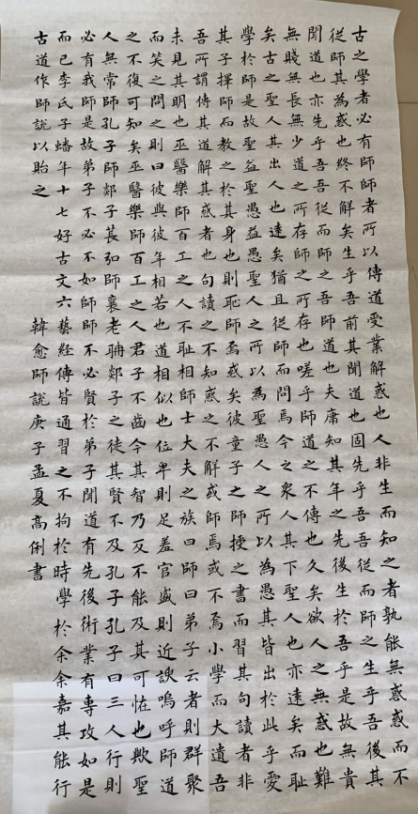 古之學者必有師師者所以傳道受業解惑也人非生而知之者孰能無惑惑而不
從師其為惑也終不解矣生乎吾前其聞道也固先乎吾吾從而師之生乎吾後其
聞道也亦先乎吾吾從而師之吾師道也夫庸知其年之先後生於吾乎是故無貴
無賤無長無少道之所存師之所存也嗟乎師道之不傳也久矣欲人之無惑也難
矣古之聖人其出人也遠矣猶且從師而問焉今之衆人其下聖人也亦遠矣而恥
學於師是故聖益聖愚益愚聖人之所以為聖愚人之所以為愚其皆出於此乎愛
其子擇師而教之於其身也則恥師焉惑矣彼童子之師授之書而習其句讀者非
吾所謂傳其道解其惑者也句讀之不知惑之不解或師焉或不焉小學而大遺吾
未見其明也巫醫樂師百工之人不恥相師士大夫之族曰師曰弟子云者則群聚
而笑之問之則曰彼與彼年相若也道相似也位卑則足羞官盛則近諛嗚呼師道
之不復可知矣巫醫樂師百工之人君子不齒今其智乃反不能及其可怪也歟聖
人無常師孔子師郯子萇弘師襄老聃郯子之徒其賢不及孔子孔子曰三人行則
必有我師是故弟子不必不如師師不必賢於弟子聞道有先後術業有專攻如是
而已李氏子蟠年十七好古文六藝經傳皆通習之不拘於時學於余余嘉其能行
古道作師說以貽之 韓愈師說庚子孟夏高俐書